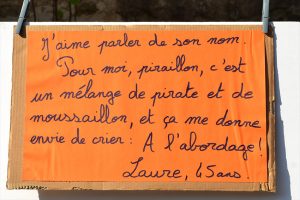 J'aime parler de son nom.
Pour moi, piraillon, c'est
un mélange de pirate et de
moussaillon, et ça me donne
envie de crier : A l'abordage !
Laure, 15 ans.